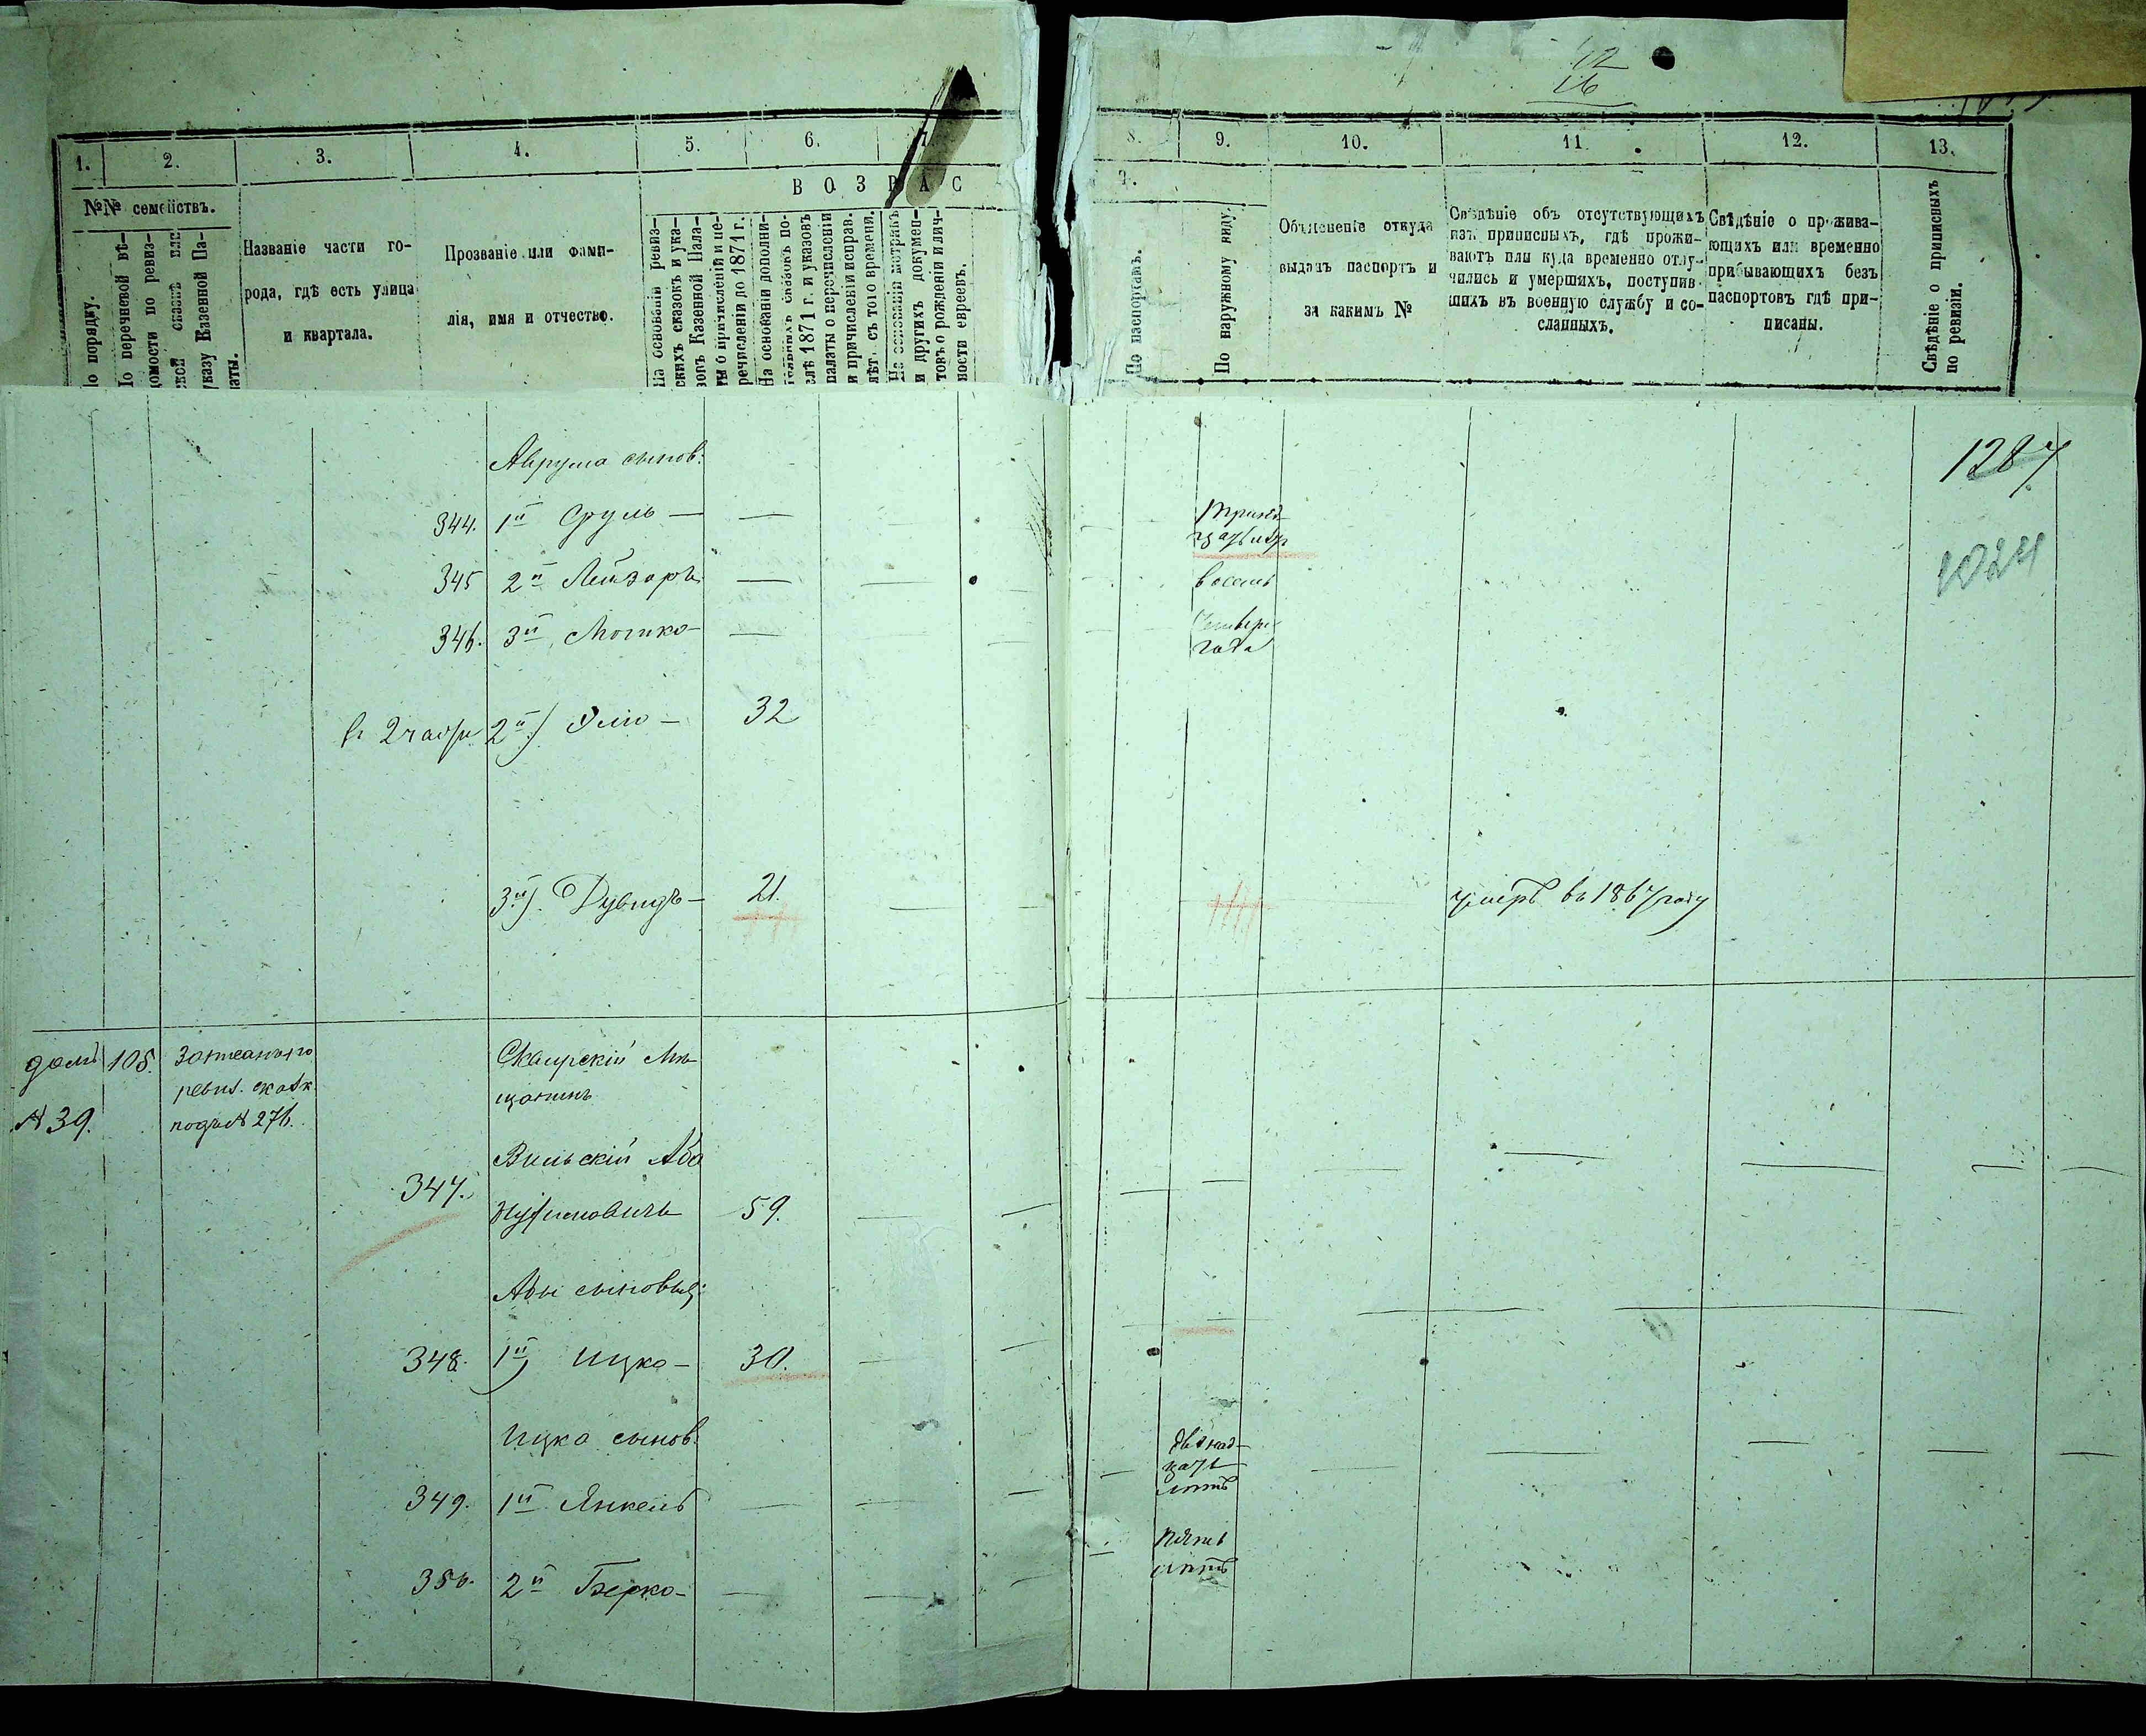 42
16
1. 2. 3. 4. 5. 6. 7. 8. 9. 10. 11. 12. 13.
ВОЗРАС Т.
№№ семействъ.
По порядку.
По перечневой вѣ-
домости по ревиз-
ской сказкѣ или
указу Казенной Па-
латы.
Названіе части го-
рода, гдѣ есть улица
и квартала.
Прозваніе или фами-
лія, имя и отчество.
На основаніи ревиз-
скихъ сказокъ и ука-
зовъ Казенной Пала-
ты о причисленіи и пе-
речисленіи до 1871 г.
На основаніи дополни-
тельныхъ сказокъ по-
слѣ 1871 г. и указовъ
палаты о перечисленіи
и причисленіи исправ.
лѣтъ съ того времени.
На основаніи метрикъ
и другихъ докумен-
товъ о рожденіи и лич-
ности евреевъ.
По паспортамъ.
По наружному виду.
Объясненіе откуда
выданъ паспортъ и
за какимъ №
Свѣдѣніе объ отсутствующихъ
изъ приписныхъ, гдѣ прожи-
ваютъ или куда временно отлу-
чились и умершихъ, поступив-
шихъ въ военную службу и со-
сланныхъ.
Свѣдѣніе о прожива-
ющихъ или временно
прибывающихъ безъ
паспортовъ гдѣ при-
писаны.
Свѣдѣніе о приписныхъ
по ревизіи.
1287
1024
Аврума сынов:
344. 1й Сруль —
345 2й Лейзоръ —
восемь
346. 3й Мошко — —
Четыре
года
в 2 части 2й) Элю — 32
3й). Дувидъ — 21.
умеръ въ 1867 году
домъ 105.
№ 39.
ревиз. сказк.
подъ № 276.
Сквирскій Мѣ-
щанинъ
347. Вильскій Аба
59.
Абы сыновья:
348. 1й) Ицко — 30.
Ицка сынов:
349. 1й Янкель —
двѣнад-
цать
лѣтъ
350. 2й Берко —
пять
лѣтъ